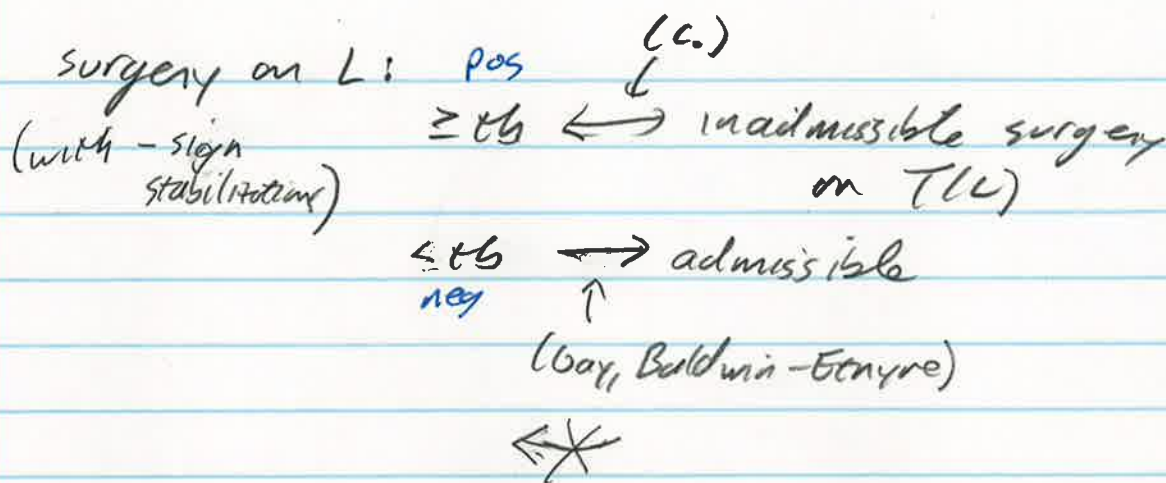 surgery on L: pos (C.)
(with - sign stabilizations) ≥ tb ⟷ inadmissible surgery
on T(L)
< tb ⟶ admissible
neg ↑
(Gay, Baldwin-Etnyre)